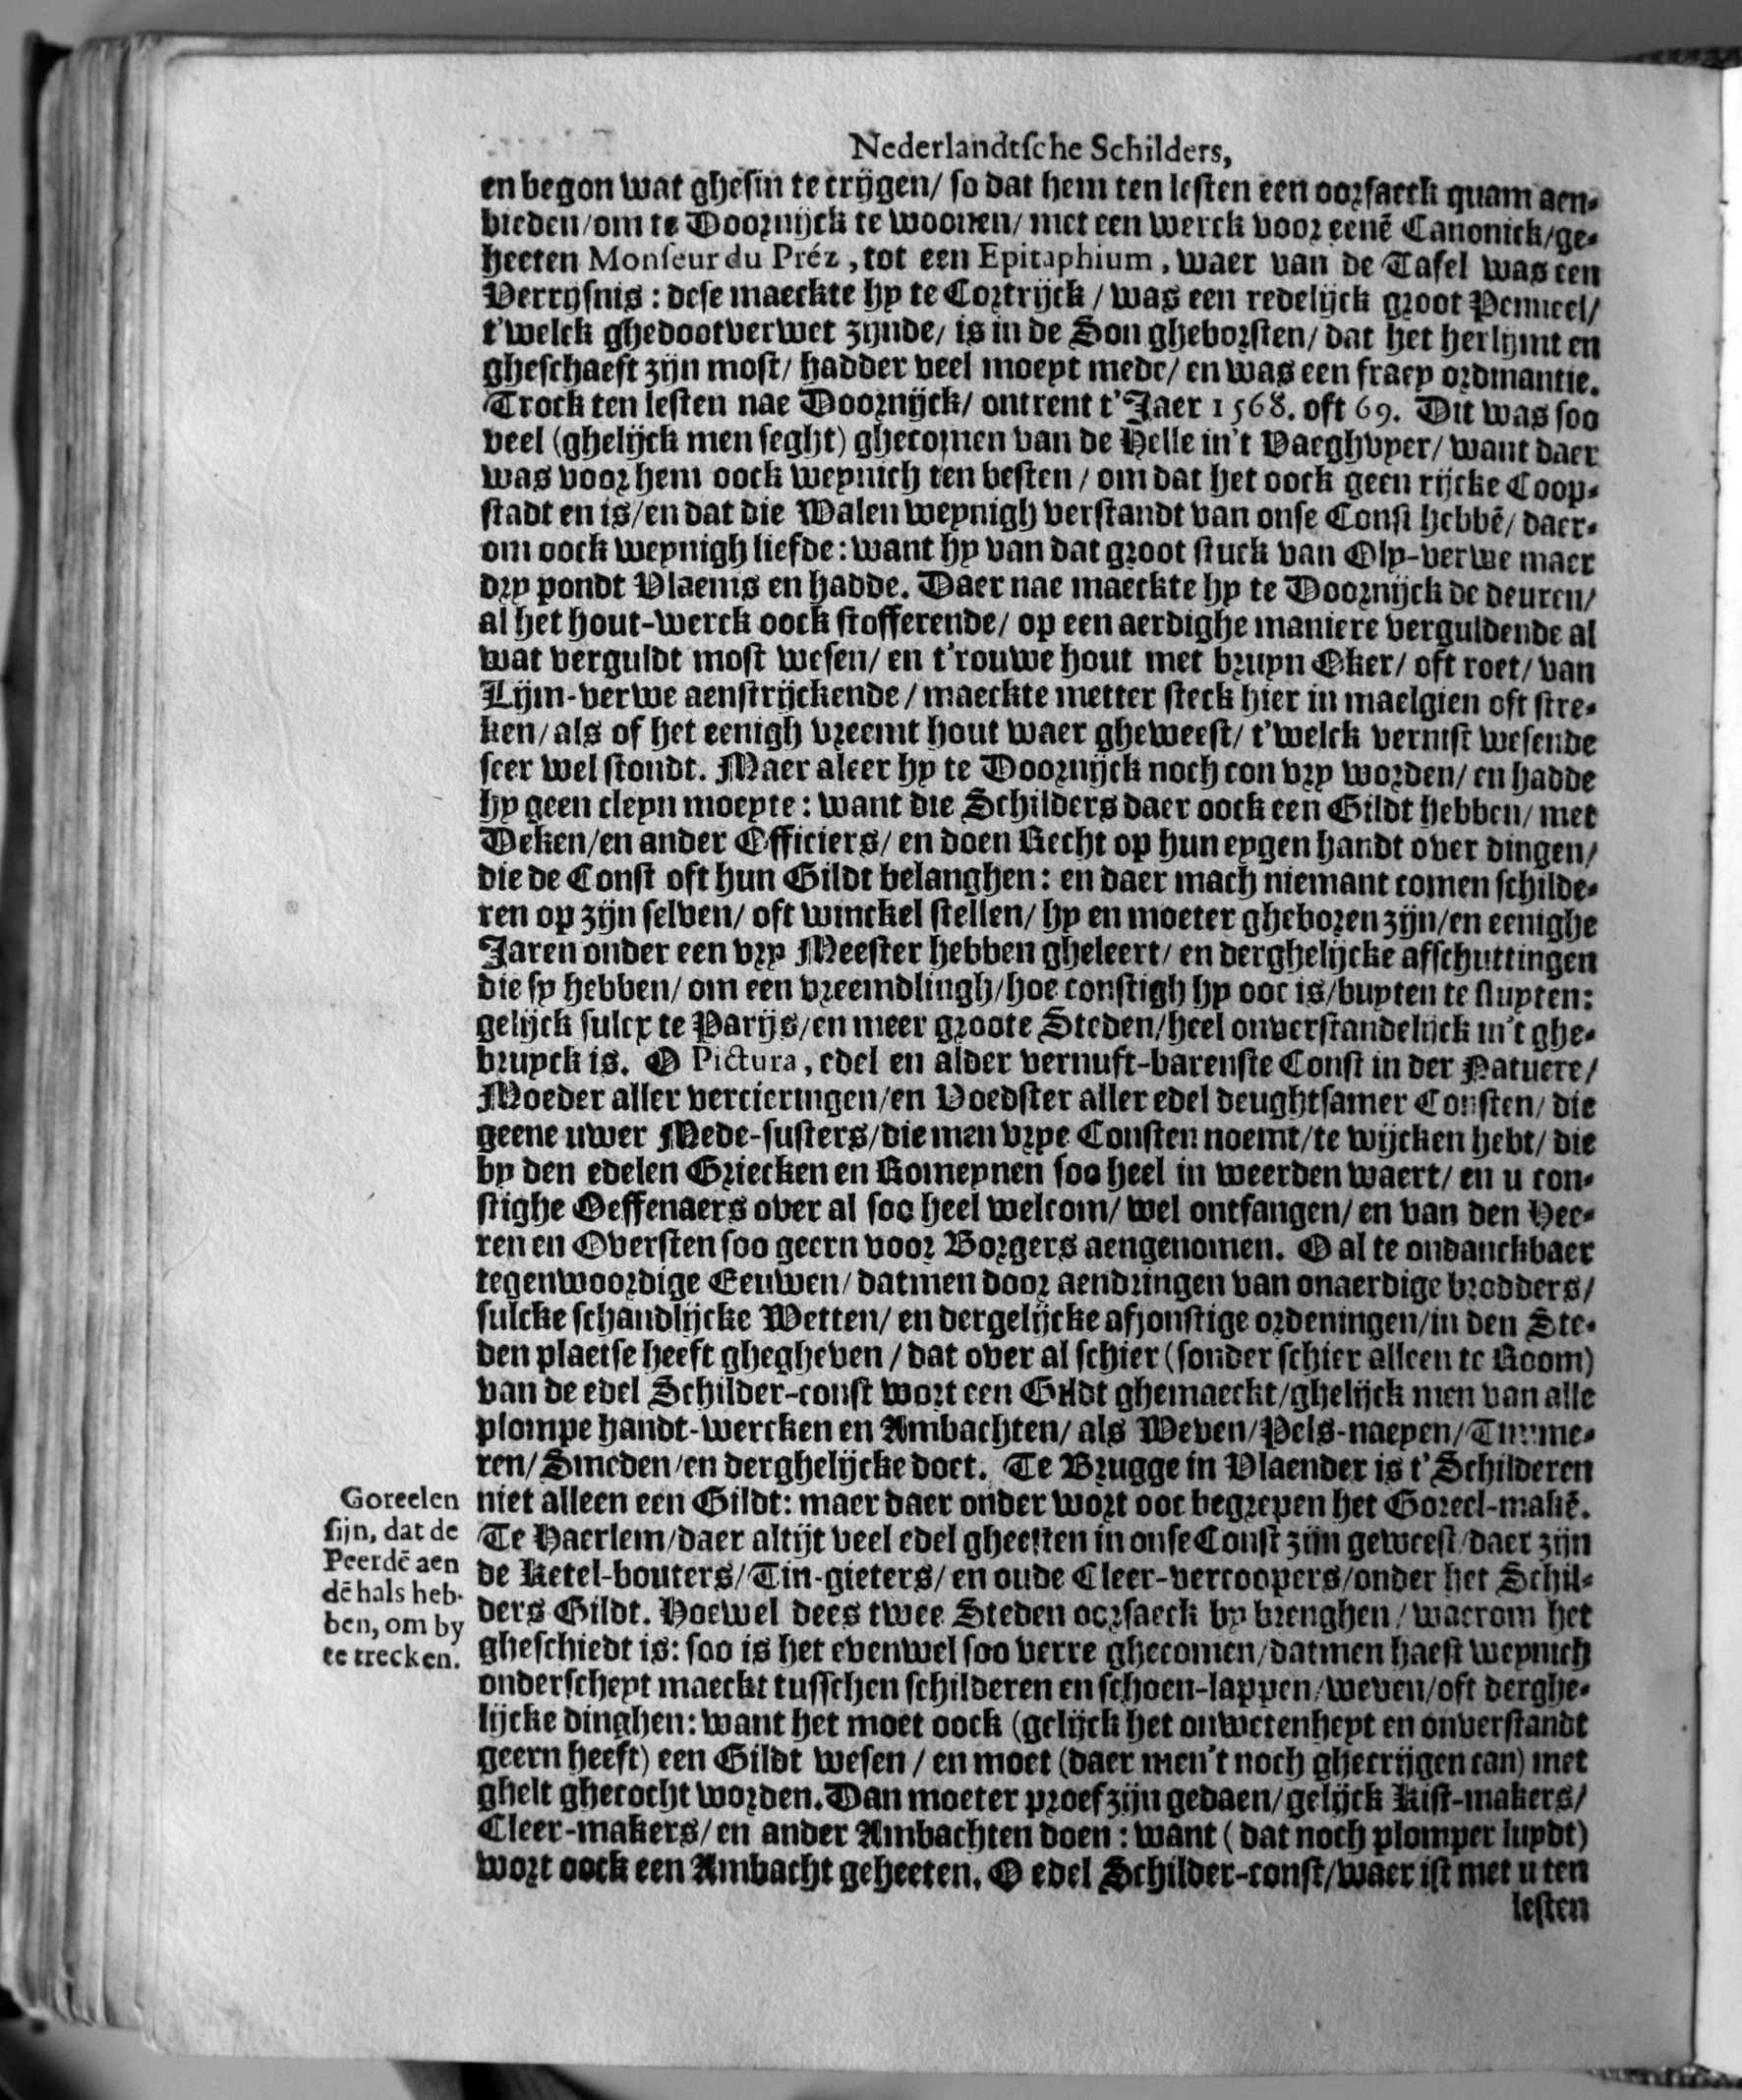 Nederlandtsche Schilders,
en begon wat ghesin te crijgen/ so dat hem ten lesten een oorsaeck quam aen-
bieden/om te Doornijck te woonen/ met een werck voor eenē Canonick/ge-
heeten Monseur du Préz, tot een Epitaphium, waer van de Tafel was een
Verrijsnis: dese maeckte hy te Cortrijck/ was een redelijck groot Penneel/
t'welck ghedootverwet zijnde/ is in de Son gheborsten/ dat het herlijmt en
gheschaeft zijn most/ hadder veel moeyt mede/ en was een fraey ordinantie.
Trock ten lesten nae Doornijck/ ontrent t'Jaer 1568. oft 69. Dit was soo
veel (ghelijck men seght) ghecomen van de Helle in't Vaeghvyer/ want daer
was voor hem oock weynich ten besten/ om dat het oock geen rijcke Coop-
stadt en is/en dat die Walen weynigh verstandt van onse Const hebbē/ daer-
om oock weynigh liefde: want hy van dat groot stuck van Oly-verwe maer
dry pondt Vlaems en hadde. Daer nae maeckte hy te Doornijck de deuren/
al het hout-werck oock stofferende/ op een aerdighe maniere verguldende al
wat verguldt most wesen/ en t'rouwe hout met bruyn Oker/ oft roet/ van
Lijm-verwe aenstrijckende/ maeckte metter steck hier in maelgien oft stre-
ken/ als of het eenigh vreemt hout waer gheweest/ t'welck vernist wesende
seer wel stondt. Maer aleer hy te Doornijck noch con vry worden/ en hadde
hy geen cleyn moeyte: want die Schilders daer oock een Gildt hebben/ met
Deken/en ander Officiers/ en doen Recht op hun eygen handt over dingen/
die de Const oft hun Gildt belanghen: en daer mach niemant comen schilde-
ren op zijn selven/ oft winckel stellen/ hy en moeter gheboren zijn/en eenighe
Jaren onder een vry Meester hebben gheleert/ en derghelijcke afschuttingen
die sy hebben/ om een vreemdlingh/hoe constigh hy ooc is/buyten te sluyten:
gelijck sulcx te Parijs/en meer groote Steden/heel onverstandelijck in't ghe-
bruyck is. O Pictura, edel en alder vernuft-barenste Const in der Natuere/
Moeder aller vercieringen/en Voedster aller edel deughtsamer Consten/ die
geene uwer Mede-susters/die men vrye Consten noemt/te wijcken hebt/ die
by den edelen Griecken en Romeynen soo heel in weerden waert/ en u con-
stighe Oeffenaers over al soo heel welcom/ wel ontfangen/ en van den Hee-
ren en Oversten soo geern voor Borgers aengenomen. O al te ondanckbaer
tegenwoordige Eeuwen/ datmen door aendringen van onaerdige brodders/
sulcke schandlijcke Wetten/ en dergelijcke afjonstige ordeningen/in den Ste-
den plaetse heeft ghegheven/ dat over al schier (sonder schier alleen te Room)
van de edel Schilder-const wort een Gildt ghemaeckt/ghelijck men van alle
plompe handt-wercken en Ambachten/ als Weven/Pels-naeyen/Timme-
ren/Smeden/en derghelijcke doet. Te Brugge in Vlaender is t'Schilderen
niet alleen een Gildt: maer daer onder wort ooc begrepen het Goreel-makē.
Te Haerlem/daer altijt veel edel gheesten in onse Const zijn geweest/daer zijn
de Ketel-bouters/Tin-gieters/en oude Cleer-vercoopers/onder het Schil-
ders Gildt. Hoewel dees twee Steden oorsaeck by brenghen/ waerom het
gheschiedt is: soo is het evenwel soo verre ghecomen/datmen haest weynich
onderscheyt maeckt tusschen schilderen en schoen-lappen/weven/oft derghe-
lijcke dinghen: want het moet oock (gelijck het onwetenheyt en onverstandt
geern heeft) een Gildt wesen/ en moet (daer men't noch ghecrijgen can) met
ghelt ghecocht worden. Dan moeter proef zijn gedaen/gelijck Kist-makers/
Cleer-makers/en ander Ambachten doen: want (dat noch plomper luydt)
wort oock een Ambacht geheeten. O edel Schilder-const/waer ist met u ten
lesten
Goreelen
sijn, dat de
Peerdē aen
dē hals heb-
ben, om by
te trecken.